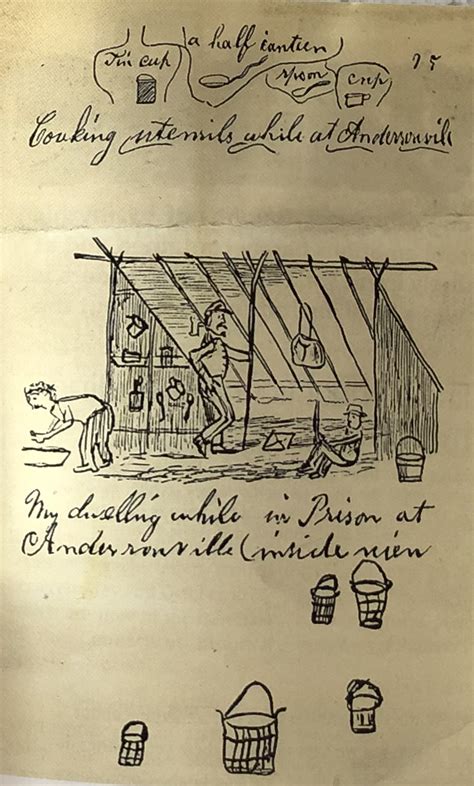 a half canteen
Tin cup
spoon
cup
Cooking utensils while at Andersonvile
My dwelling while in Prison at
Andersonville (inside